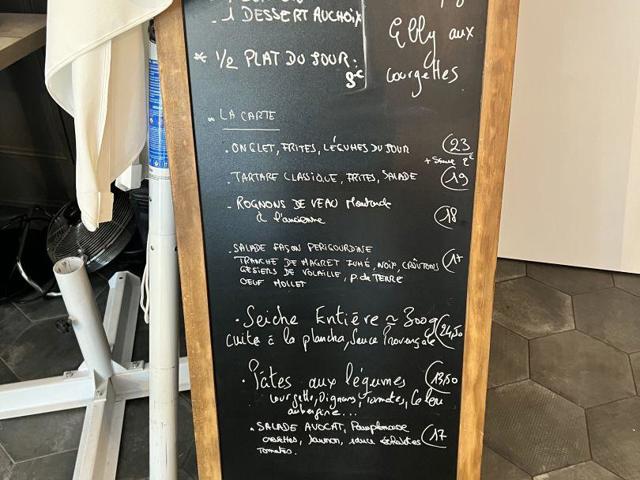 - 1 DESSERT AU CHOIX
* 1/2 PLAT DU JOUR:
8€
Elly aux
courgettes.
LA CARTE
. ONGLET, FRITES, LÉGUMES DU JOUR 23
+ Sauce 2€
. TARTARE CLASSIQUE, FRITES, SALADE 19
. ROGNONS DE VEAU Moutarde 18
à l'ancienne
. SALADE FAÇON PERIGOURDINE 17
TRANCHE DE MAGRET FUMÉ, NOIX, CROÛTONS
GESIERS DE VOLAILLE, P. de TERRE
OEUF MOLLET
. Seiche Entière ~ 300g 24,50
cuite à la plancha, Sauce Provençale
. Pâtes aux légumes 13,50
courgette, Oignons, Tomates, Céleri
aubergine...
. SALADE AVOCAT, Pamplemousse 17
crevettes, saumon, sauce échalottes
Tomates.